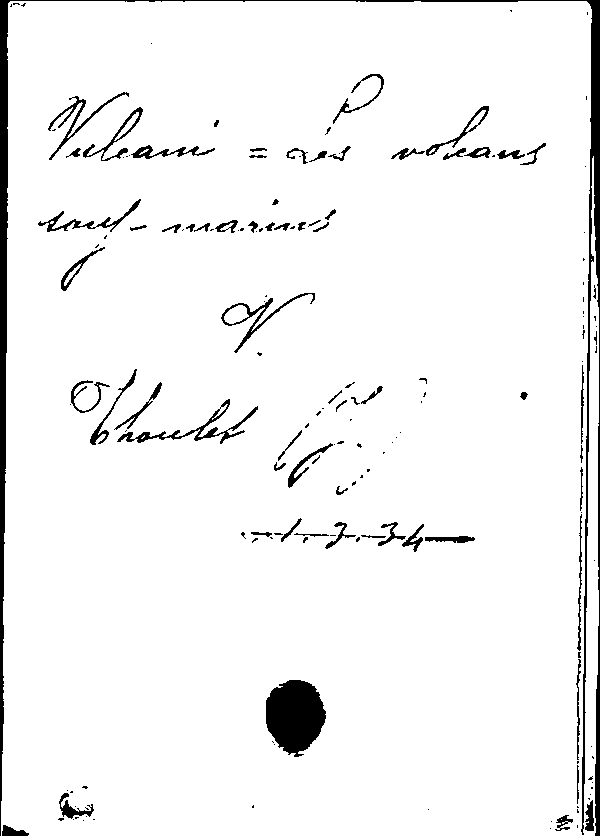 Vulcani = Les volcans
sous-marins
V.
Thoulet (J.)
1.3.34